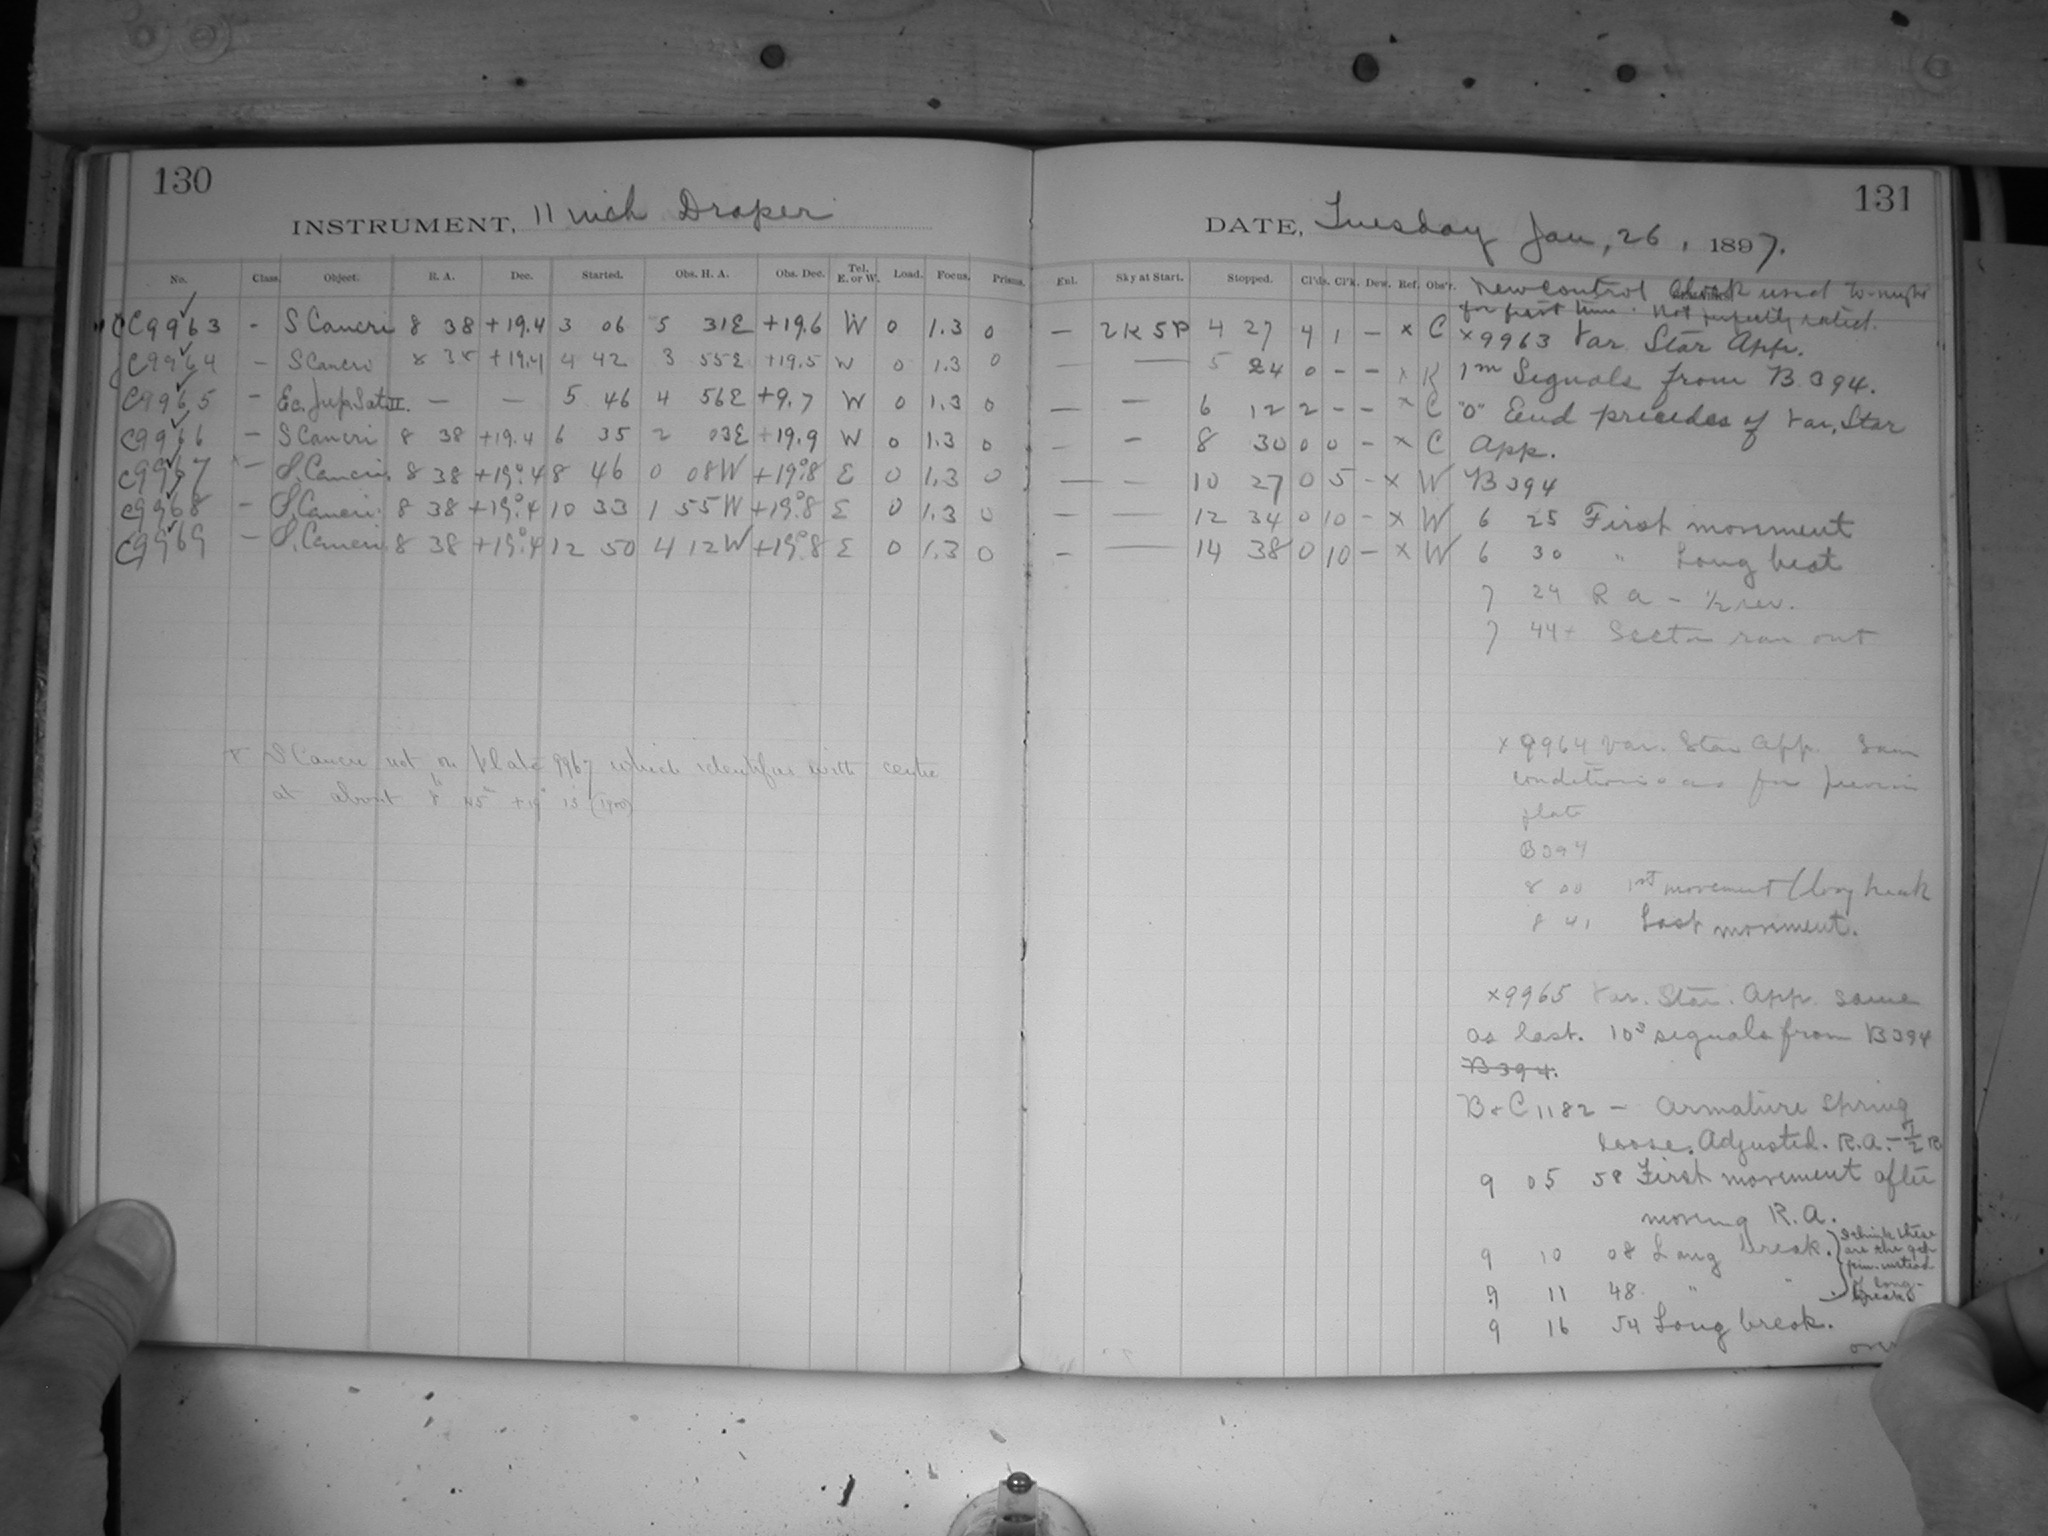 130
INSTRUMENT, 11 inch Draper
No. Class. Object. R. A. Dec. Started. Obs. H. A. Obs. Dec. Tel. E. or W. Load. Focus. Prisms.
C9963 - S Cancri 8 38 +19.4 3 06 5 31E +19.6 W 0 1.3 0
C9964 - S Cancri 8 38 +19.4 4 42 3 55E +19.5 W 0 1.3 0
C9965 - Ec. Jup. Sat II. - - 5 46 4 56E +9.7 W 0 1.3 0
C9966 - S Cancri 8 38 +19.4 6 35 2 03E +19.9 W 0 1.3 0
C9967 x - S. Cancri. 8 38 +19°.4 8 46 0 08W +19°.8 E 0 1.3 0
C9968 - S. Cancri. 8 38 +19°.4 10 33 1 55W +19°.8 E 0 1.3 0
C9969 - S. Cancri. 8 38 +19°.4 12 50 4 12W +19°.8 E 0 1.3 0
x S Cancri not on plate 9967 which identifies with centre
at about 8h 45m +19° 15 (1900)
131
DATE, Tuesday Jan, 26, 1897.
Enl. Sky at Start. Stopped. Cl'ds. Cl'k. Dew. Ref. Obs'r.
New Control Clock used to-night
for first time. Not perfectly rated.
- 2K 5P 4 27 4 1 - x C x9963 Var. Star App.
- - 5 24 0 - - x K 1m Signals from B 394.
- - 6 12 2 - - x C "0" End precedes of Var. Star
- - 8 30 0 0 - x C App.
- - 10 27 0 5 - x W B 394
- - 12 34 0 10 - x W 6 25 First movement
- - 14 38 0 10 - x W 6 30 " Long beat
7 24 R A - 1/2 rev.
7 44+ Sector ran out
x9964 Var. Star App. Same
conditions as for previous
plate
B394
8 00 1st movement (long break
8 41 Last movement.
x9965 Var. Star. App. same
as last. 10s signals from B394
B394.
B & C 1182 - Armature spring
loose. Adjusted. R.A. - 1/2 R
9 05 58 First movement after
moving R.A.
9 10 08 Long break.
9 11 48 " "
I think these
are the gap
instead
of long
breaks
9 16 54 Long break.
over